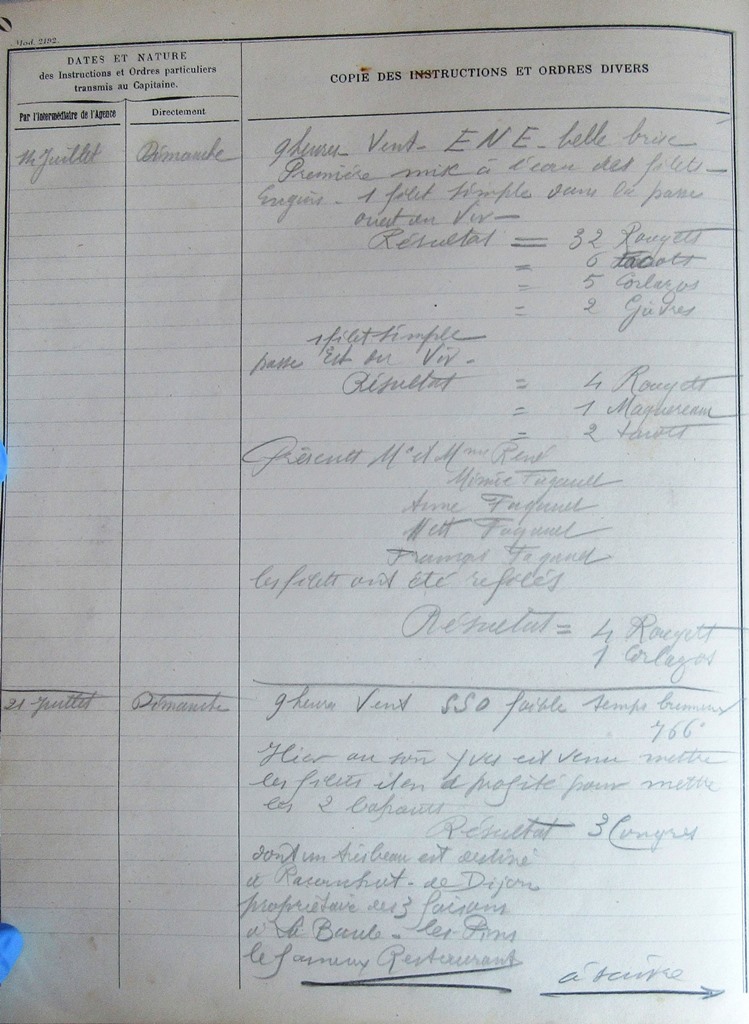 Mod. 2192.
DATES ET NATURE
des Instructions et Ordres particuliers
transmis au Capitaine.
COPIE DES INSTRUCTIONS ET ORDRES DIVERS
Par l'Intermédiaire de l'Agence
Directement
14 Juillet Dimanche 9 heures Vent - ENE - belle brise
Première mise à l'eau des filets -
Engins - 1 filet simple dans la passe
ouest du Vir -
Résultat = 32 Rougets
= 6 tacots
= 5 Corlazos
= 2 Gièvres
1 filet simple
passe Est du Vir -
Résultat = 4 Rougets
= 1 Maquereau
= 2 tacots
Présents Mr et Mme René
Mimie
Anne
François
les filets ont été
Résultat = 4 Rougets
1 Corlazos
21 Juillet Dimanche 9 heures Vent SSO faible temps brumeux
766°
Hier au soir Yves est venu mettre
les filets il en a profité pour mettre
les 2
Résultat 3 Congres
dont un très beau est destiné
à de Dijon
propriétaire des 3 faisans
à La Baule - les Pins
le fameux Restaurant
à suivre